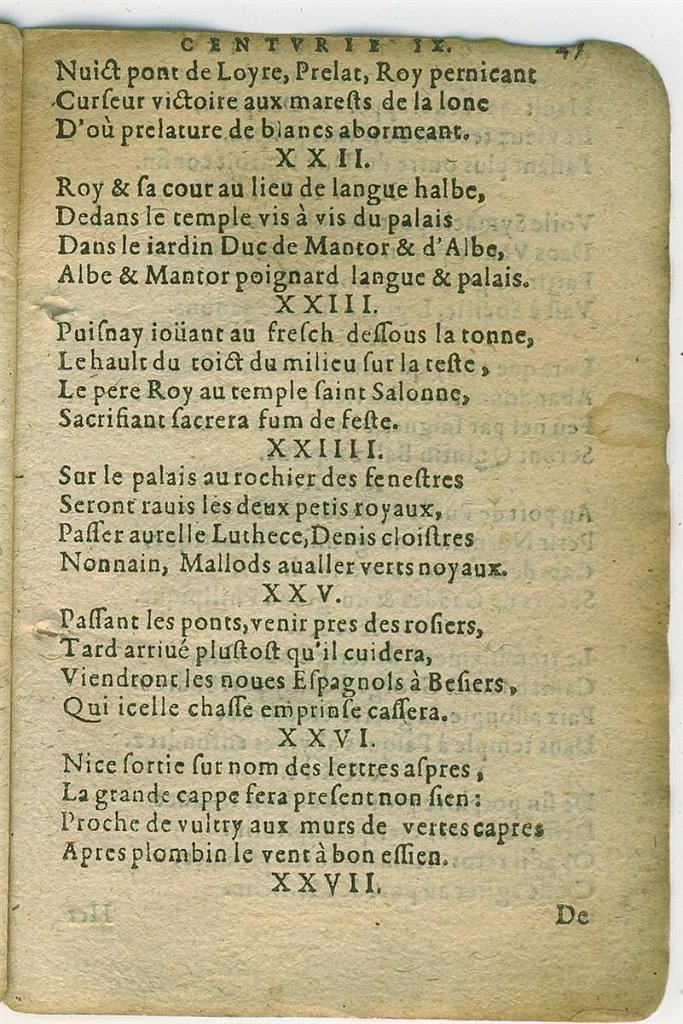 CENTVRIE IX. 47
Nuict pont de Loyre, Prelat, Roy pernicant
Curſeur victoire aux mareſts de la lone
D'où prelature de blancs abormeant.
XXII.
Roy & ſa cour au lieu de langue halbe,
Dedans le temple vis à vis du palais
Dans le iardin Duc de Mantor & d'Albe,
Albe & Mantor poignard langue & palais.
XXIII.
Puiſnay ioüant au freſch deſſous la tonne,
Le hault du toict du milieu ſur la teſte,
Le pere Roy au temple ſaint Salonne,
Sacrifiant ſacrera fum de feſte.
XXIIII.
Sur le palais au rochier des feneſtres
Seront rauis les deux petis royaux,
Paſſer aurelle Luthece, Denis cloiſtres
Nonnain, Mallods aualler verts noyaux.
XXV.
Paſſant les ponts, venir pres des roſiers,
Tard arriué pluſtoſt qu'il cuidera,
Viendront les noues Eſpagnols à Beſiers,
Qui icelle chaſſe emprinſe caſſera.
XXVI.
Nice ſortie ſur nom des lettres aſpres,
La grande cappe fera preſent non ſien:
Proche de vultry aux murs de vertes capres
Apres plombin le vent à bon eſſien.
XXVII.
De